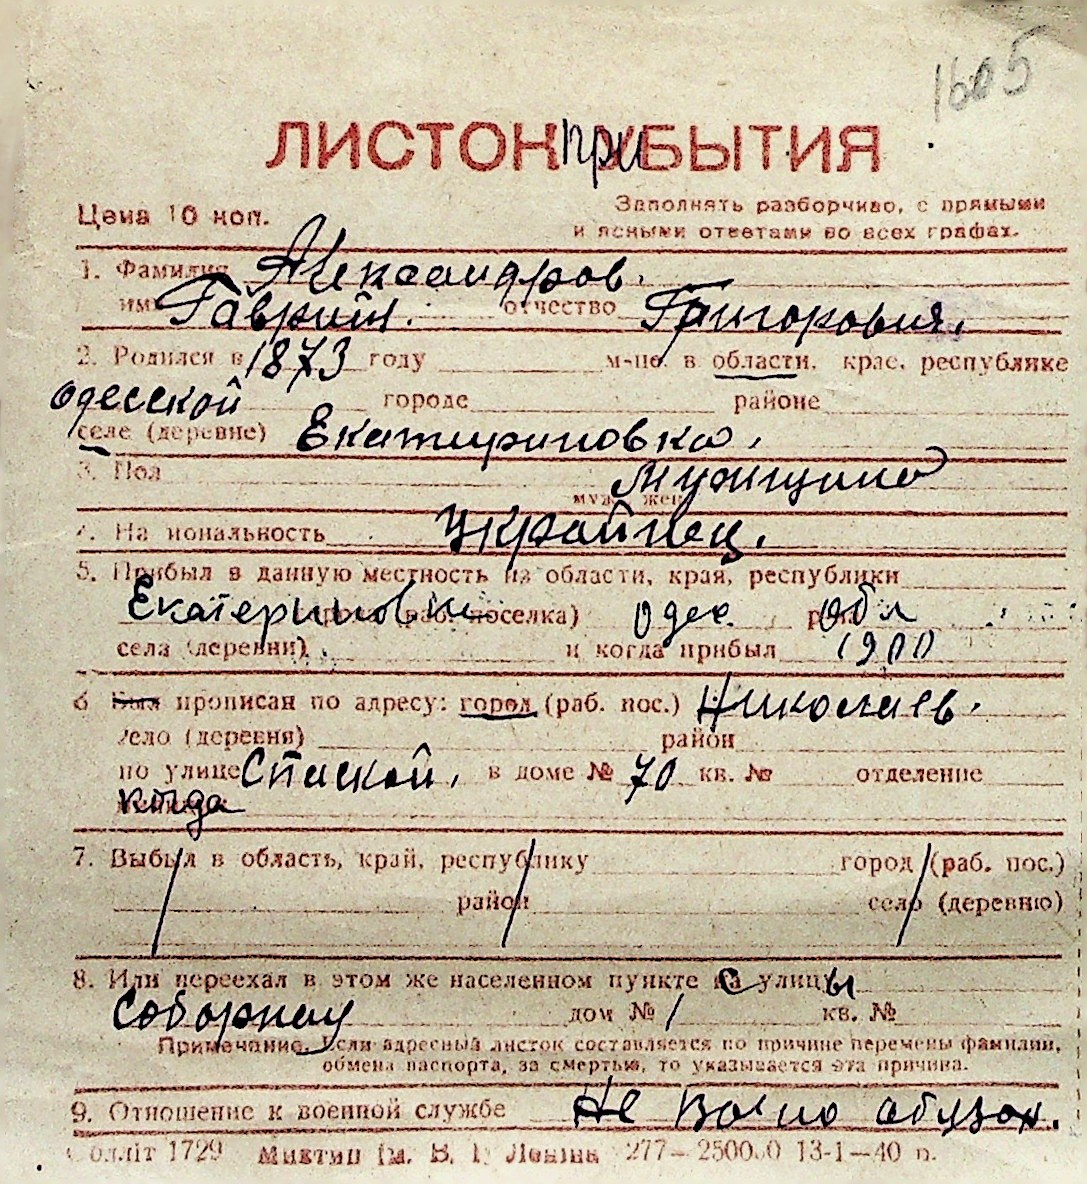 1605
ЛИСТОК при БЫТИЯ
Цена 10 коп.
Заполнять разборчиво, с прямыми
и ясными ответами во всех графах.
1. Фамилия Александров.
имя Гавриил. отчество Григоровия.
2. Родился в 1873 году м-це в области, крае, республике
Одесской городе районе
селе (деревне) Екатириновка.
3. Пол Мужщина
муж. жен.
4. Национальность Украйнец.
5. Прибыл в данную местность из области, края, республики
Екатериновки (раб. поселка) Одес. Обл
села (деревни) и когда прибыл 1900
6 Был прописан по адресу: город (раб. пос.) Николаев.
село (деревня) район
по улице Спаской. в доме № 70 кв. № отделение
когда
7. Выбыл в область, край, республику город (раб. пос.)
район село (деревню)
8. Или переехал в этом же населенном пункте с улицы
Соборная дом № 1 кв. №
Примечание. Если адресный листок составляется по причине перемены фамилии,
обмена паспорта, за смертью, то указывается эта причина.
9. Отношение к военной службе Не во но обузон.
Облліт 1729 277—250000 13-1—40 п.